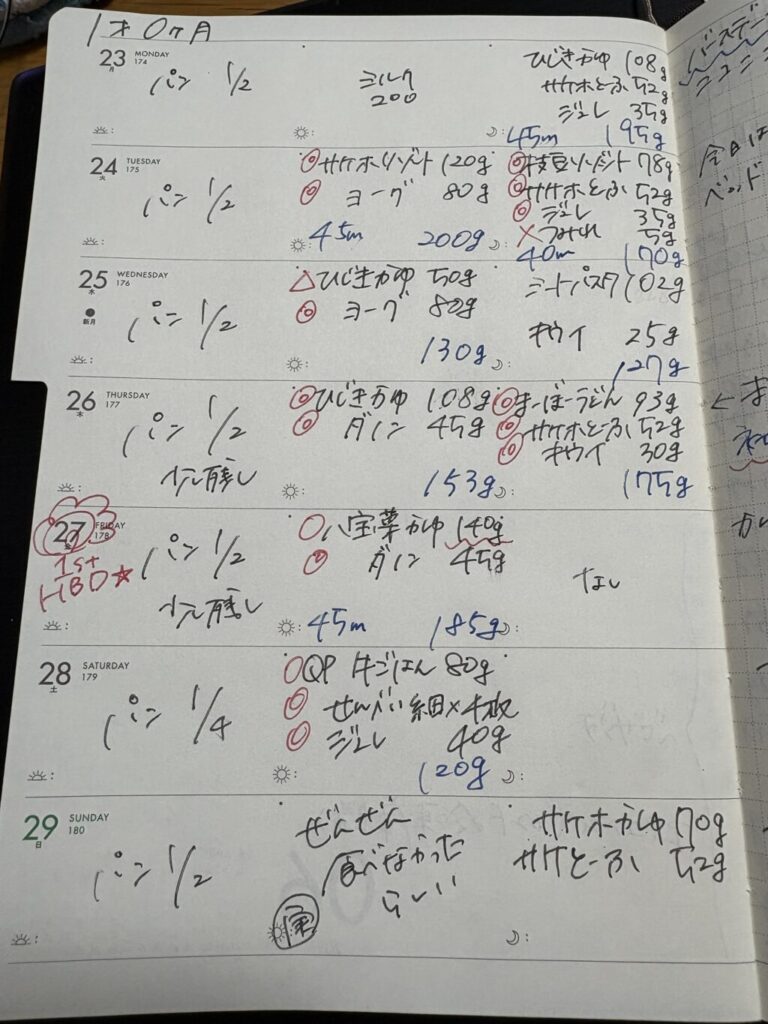 1才0ヶ月
23 MONDAY 174
月
パン 1/2
ミルク
200
ひじきかゆ 108g
サケホとーふ 52g
ジュレ 35g
45m 195g
24 TUESDAY 175
火
パン 1/2
◎サケホリゾット 120g
◎ヨーグ 80g
45m 200g
◎枝豆リゾット 78g
◎サケホとーふ 52g
◎ジュレ 35g
×つみれ 5g
40m 170g
25 WEDNESDAY 176
水
新月
パン 1/2
△ひじきかゆ 50g
◎ヨーグ 80g
130g
ミートパスタ 102g
キウイ 25g
127g
26 THURSDAY 177
木
パン 1/2
少し残し
◎ひじきかゆ 108g
◎ダノン 45g
153g
◎まーぼーうどん 93g
◎サケホとーふ 52g
◎キウイ 30g
175g
27 FRIDAY 178
金
1st
HBD☆
パン 1/2
少し残し
○八宝菜かゆ 140g
◎ダノン 45g
45m 185g
なし
28 SATURDAY 179
土
パン 1/4
○QP 牛ごはん 80g
◎せんべい細×4枚
◎ジュレ 40g
120g
29 SUNDAY 180
日
パン 1/2
ぜんぜん
食べなかった
らしい
サケホかゆ 70g
サケとーふ 52g
バースデー
今日は
ベッド
←